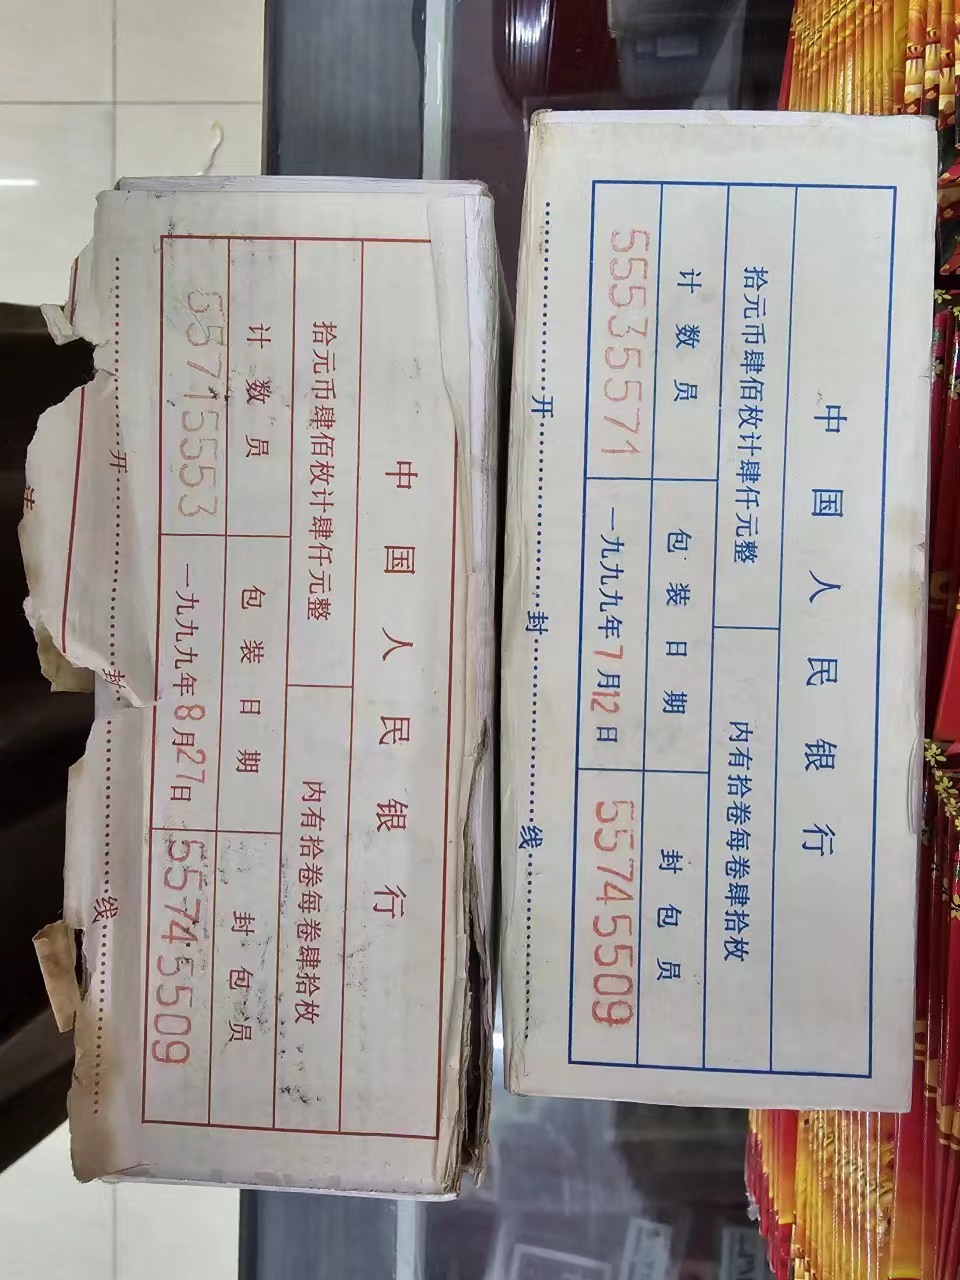 中国人民银行
拾元币肆佰枚计肆仟元整 内有拾卷每卷肆拾枚
计数员 包装日期 封包员
55535571 一九九九年7月12日 55745509
开封线
中国人民银行
拾元币肆佰枚计肆仟元整 内有拾卷每卷肆拾枚
计数员 包装日期 封包员
55715553 一九九九年8月27日 55745509
开封线